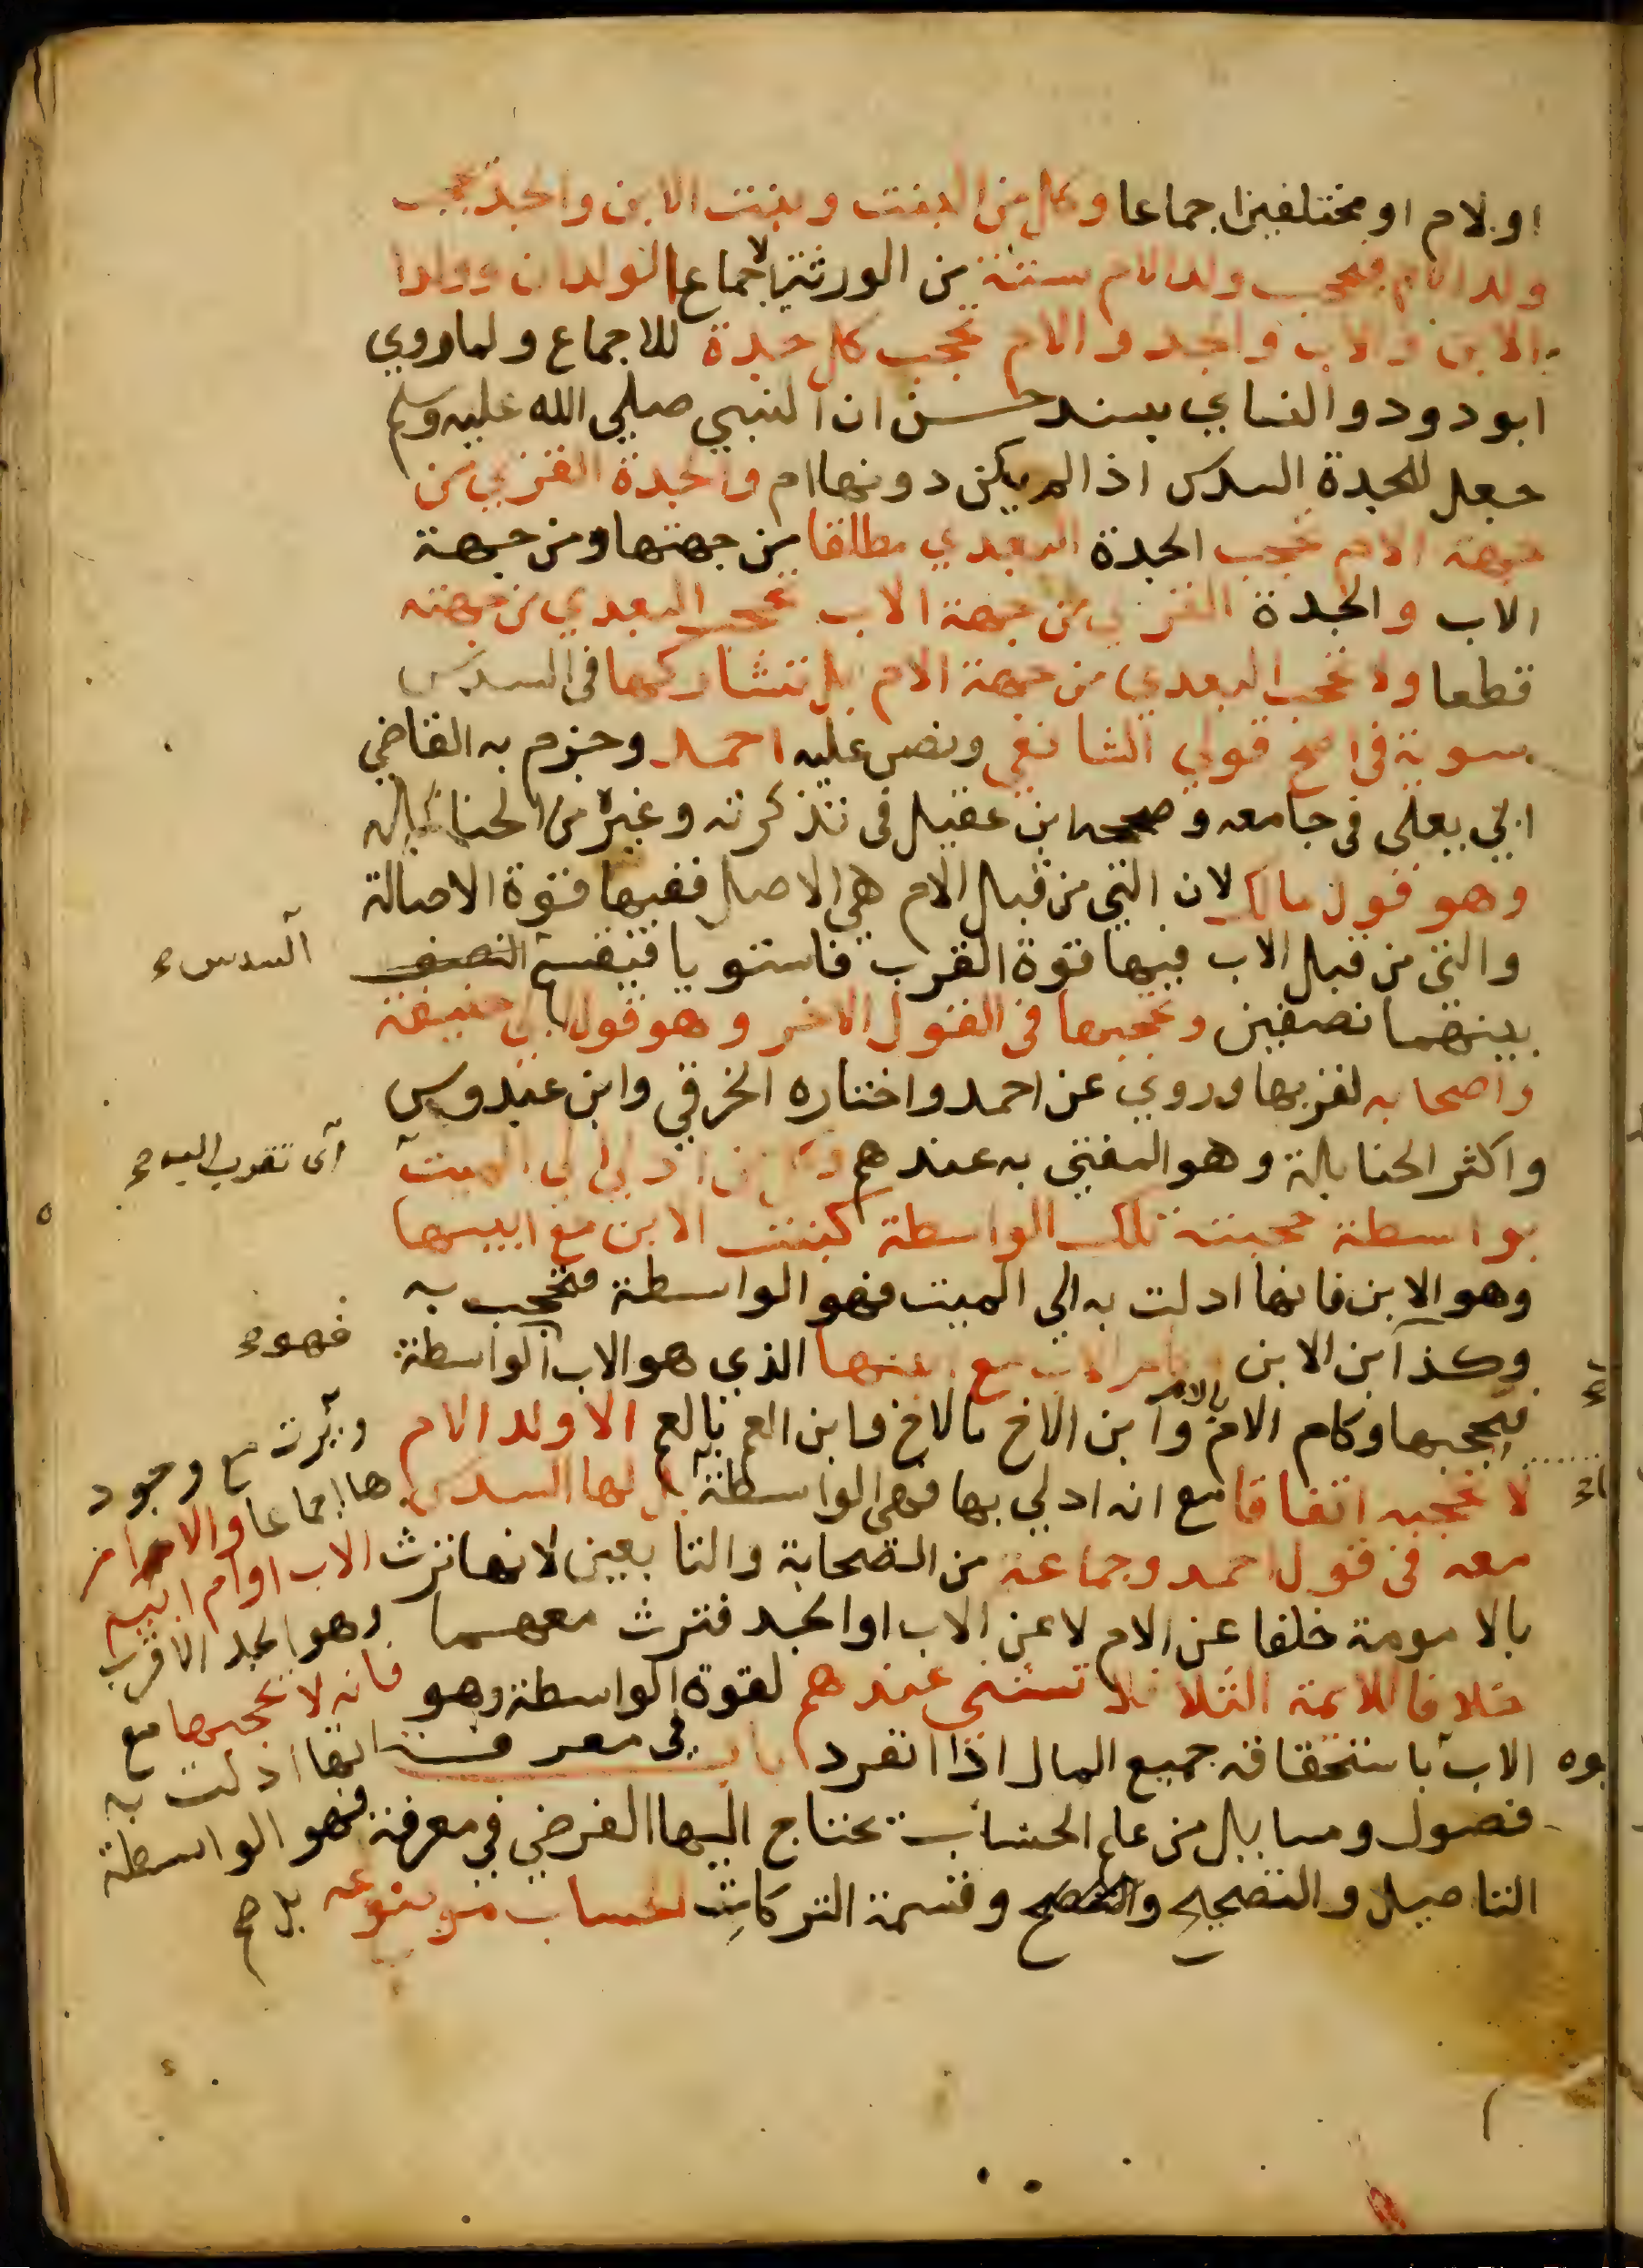 او لام او مختلفين اجماعا وكل من البنت وبنت الابن والجد تحجب
ولد الام فيحجب ولد الام ستة من الورثة اجماعا الولدان وولدا
الابن والاب والجد والام تحجب كل جدة للاجماع ولما روي
ابو دود والنساي بسند حسن ان النبي صلي الله عليه وسلم
جعل للجدة السدس اذا لم يكن دونها ام والجدة القربي من
جهة الام تحجب الجدة البعدي مطلقا من جهتها ومن جهة
الاب والجدة القربي من جهة الاب تحجب البعدي من جهته
قطعا ولا تحجب البعدي من جهة الام بل تتشاركها في السدس
سوية في اصح قولي الشافعي ونص عليه احمد وجزم به القاضي
ابي يعلي في جامعه وصححه ابن عقيل في تذكرته وغيره من الحنابله
وهو قول مالك لان التي من قبل الام هي الاصل ففيها قوة الاصالة
والتي من قبل الاب فيها قوة القرب فاستويا فيقسم النصف
السدس ء
بينهما نصفين وتحجبها في القول الاخر وهو قول ابي حنيفة
واصحابه لقربها وروي عن احمد واختاره الخرقي وابن عبدوس
واكثر الحنابلة وهو المفتي به عندهم وكل من ادلي الي الميت
اى تقرب اليه ء
بواسطة حجبته تلك الواسطة كبنت الابن مع ابيها
وهو الابن فانها ادلت به الي الميت فهو الواسطة فتحجب به
وكذا ابن الابن وام الاب مع ابنها الذي هو الاب الواسطة
فهو ء
فيحجبها وكام الام بالام وابن الاخ بالاخ وابن العم بالعم الا ولد الام
لا تحجبه اتفاقا مع انه ادلي بها فهي الواسطة بل لها السدس
معه في قول احمد وجماعة من الصحابة والتابعين لانها ترث
بالامومة خلفا عن الام لا عن الاب او الجد فترث معهما
خلافا للايمة الثلاثة فلا تستثني عندهم لقوة الواسطة وهو
الاب باستحقاقه جميع المال اذا انفرد باب في معرفة
فصول ومسايل من علم الحساب يحتاج اليها الفرضي في معرفة
التاصيل والتصحيح وقسمة التركات لحساب
ويرث مع وجود
ها اجماعا والا ام
الاب او ام ابيه
وهو الجد الاقرب
فانه لا تحجبها مع
انها ادلت به
فهو الواسطة
بل صح